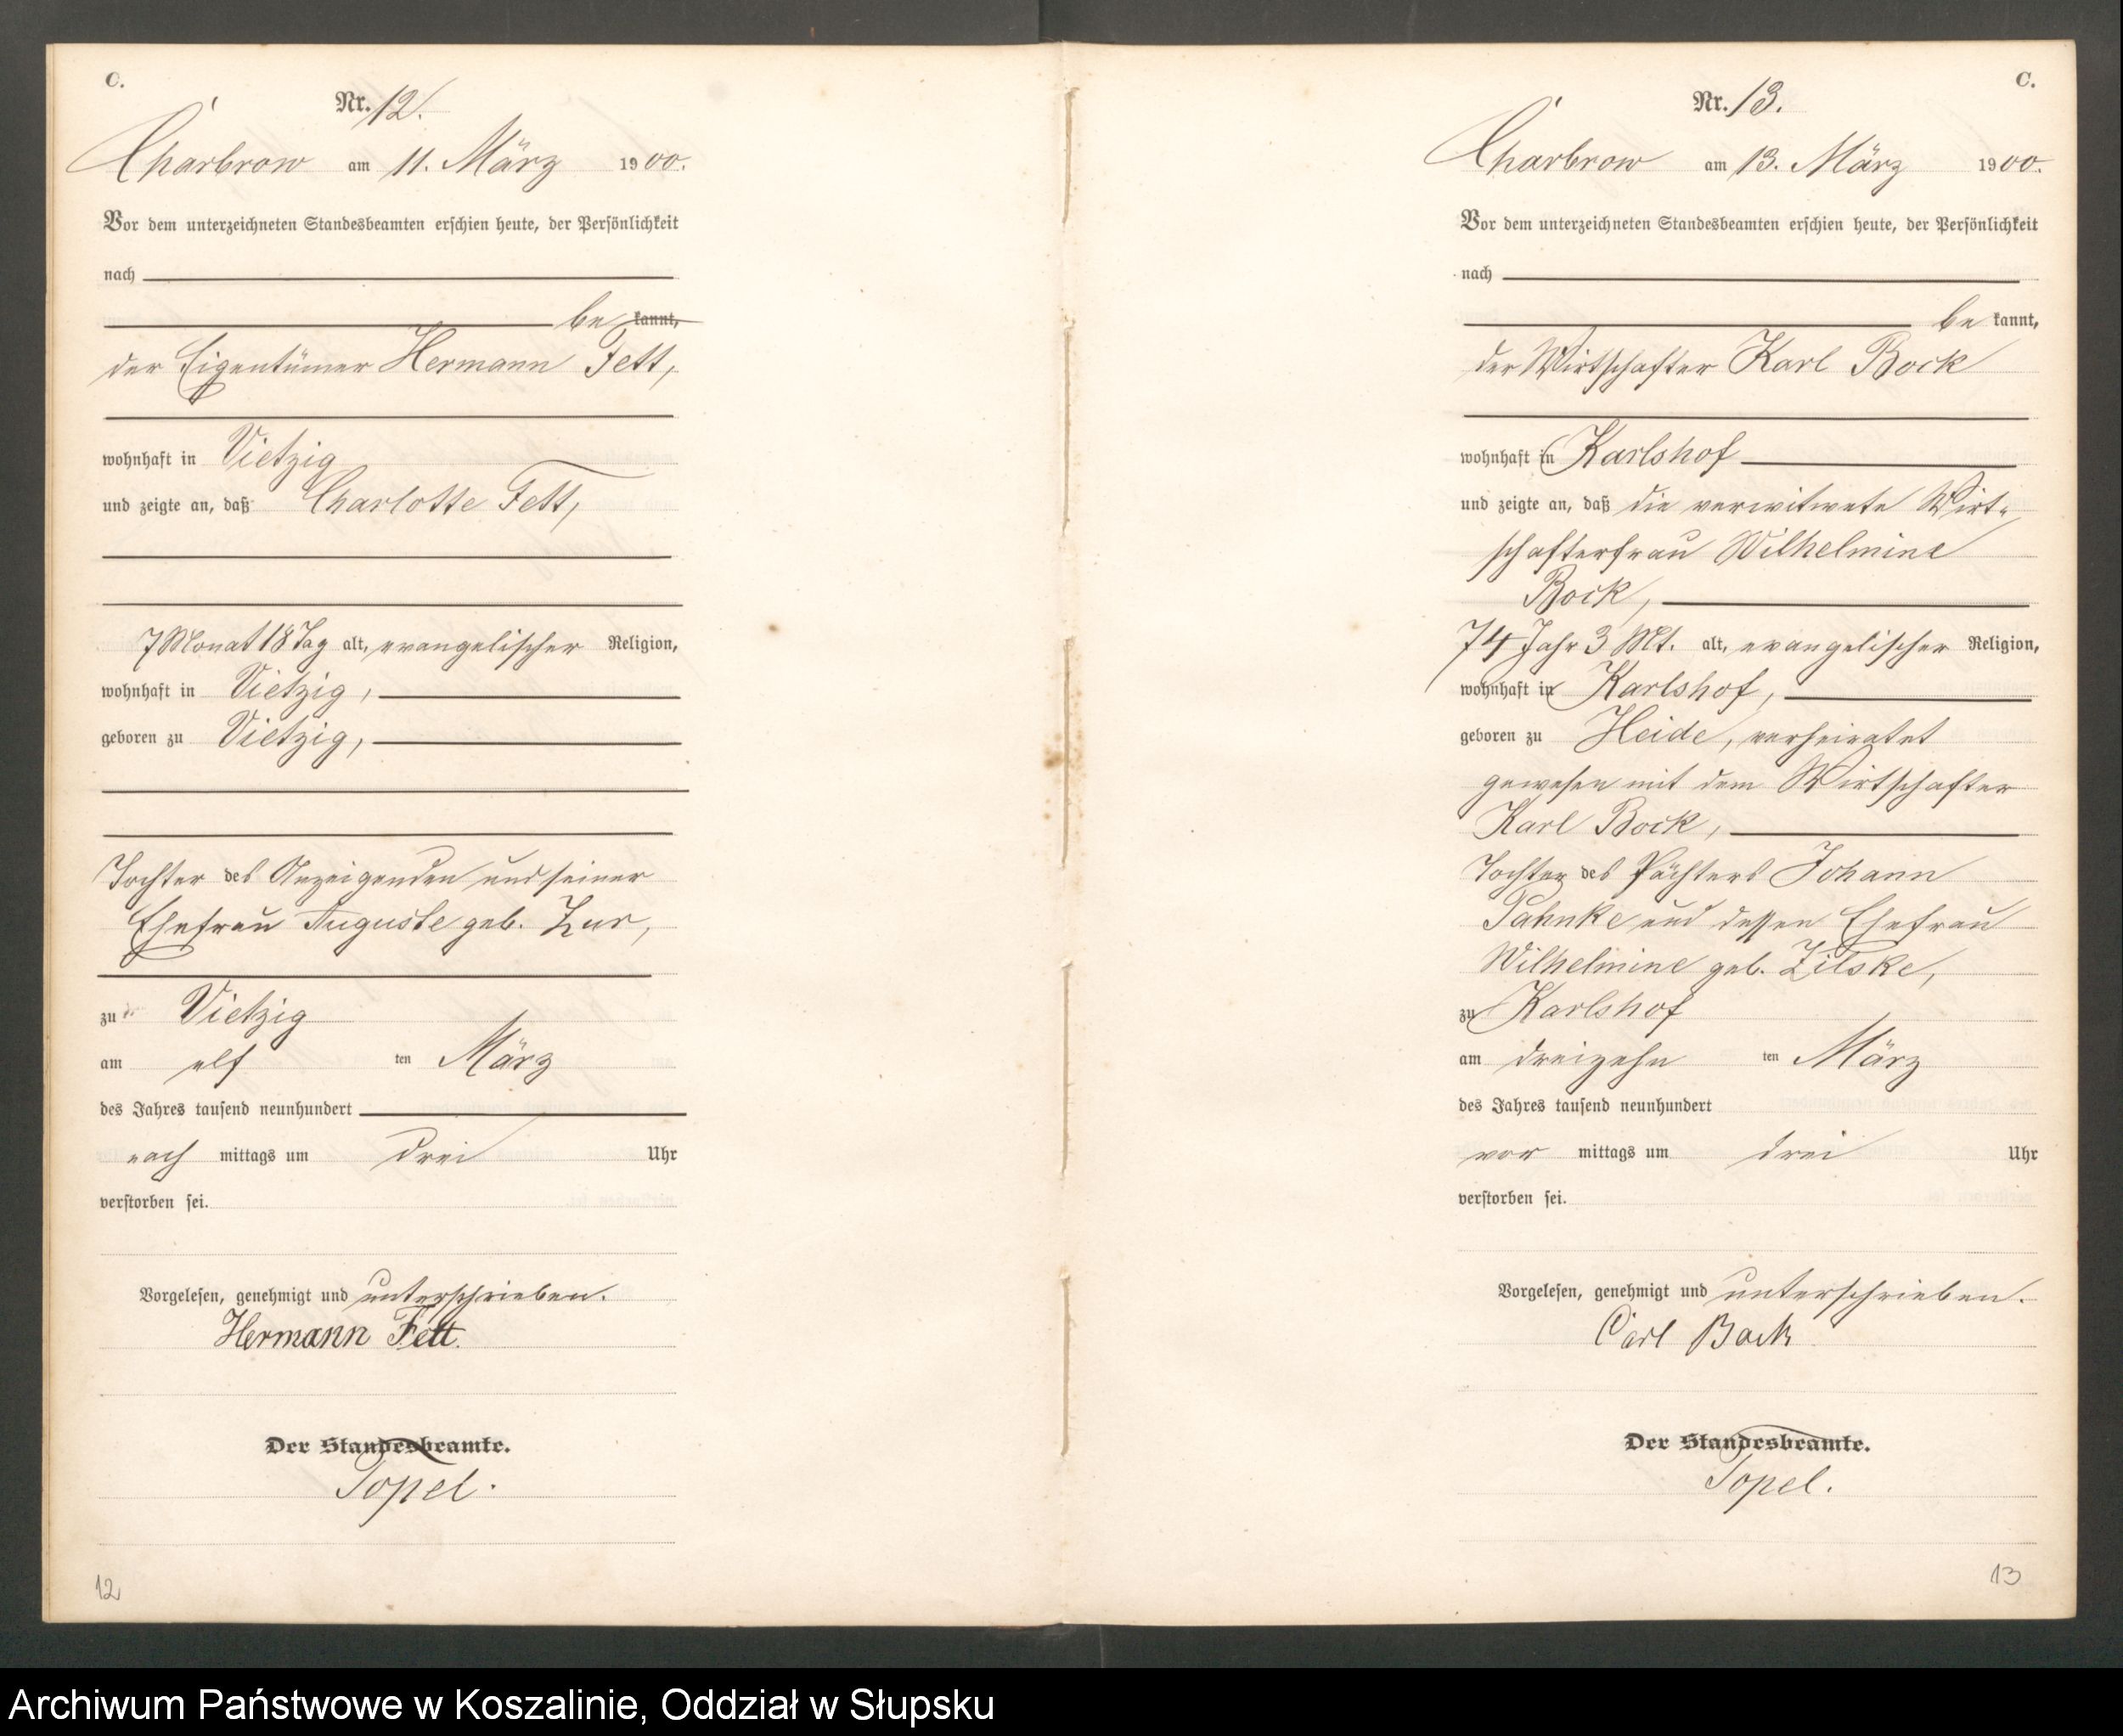 C.
Nr. 12.
Charbrow am 11. März 1900.
Vor dem unterzeichneten Standesbeamten erschien heute, der Persönlichkeit
nach
be kannt,
der Eigentümer Hermann Fett,
wohnhaft in Vietzig
und zeigte an, daß Charlotte Fett,
7 Monat 18 Tag alt, evangelischer Religion,
wohnhaft in Vietzig,
geboren zu Vietzig,
Tochter des Anzeigenden und seiner
Ehefrau Auguste geb.
zu Vietzig
am elf ten März
des Jahres tausend neunhundert
nach mittags um drei Uhr
verstorben sei.
Vorgelesen, genehmigt und unterschrieben.
Hermann Fett.
Der Standesbeamte.
Topel.
12
C.
Nr. 13.
Charbrow am 13. März 1900.
Vor dem unterzeichneten Standesbeamten erschien heute, der Persönlichkeit
nach
be kannt,
der Wirtschafter Karl Bock
wohnhaft in Karlshof
und zeigte an, daß die verwitwete Wirt-
schafterfrau Wilhelmine
Bock,
74 Jahr 3 Mt. alt, evangelischer Religion,
wohnhaft in Karlshof,
geboren zu Heide, verheiratet
gewesen mit dem Wirtschafter
Karl Bock,
Tochter des Pächters Johann
Pahnke und dessen Ehefrau
Wilhelmine geb. Zilske,
zu Karlshof
am dreizehn ten März
des Jahres tausend neunhundert
vor mittags um drei Uhr
verstorben sei.
Vorgelesen, genehmigt und unterschrieben.
Carl Bock
Der Standesbeamte.
Topel.
13
Archiwum Państwowe w Koszalinie, Oddział w Słupsku